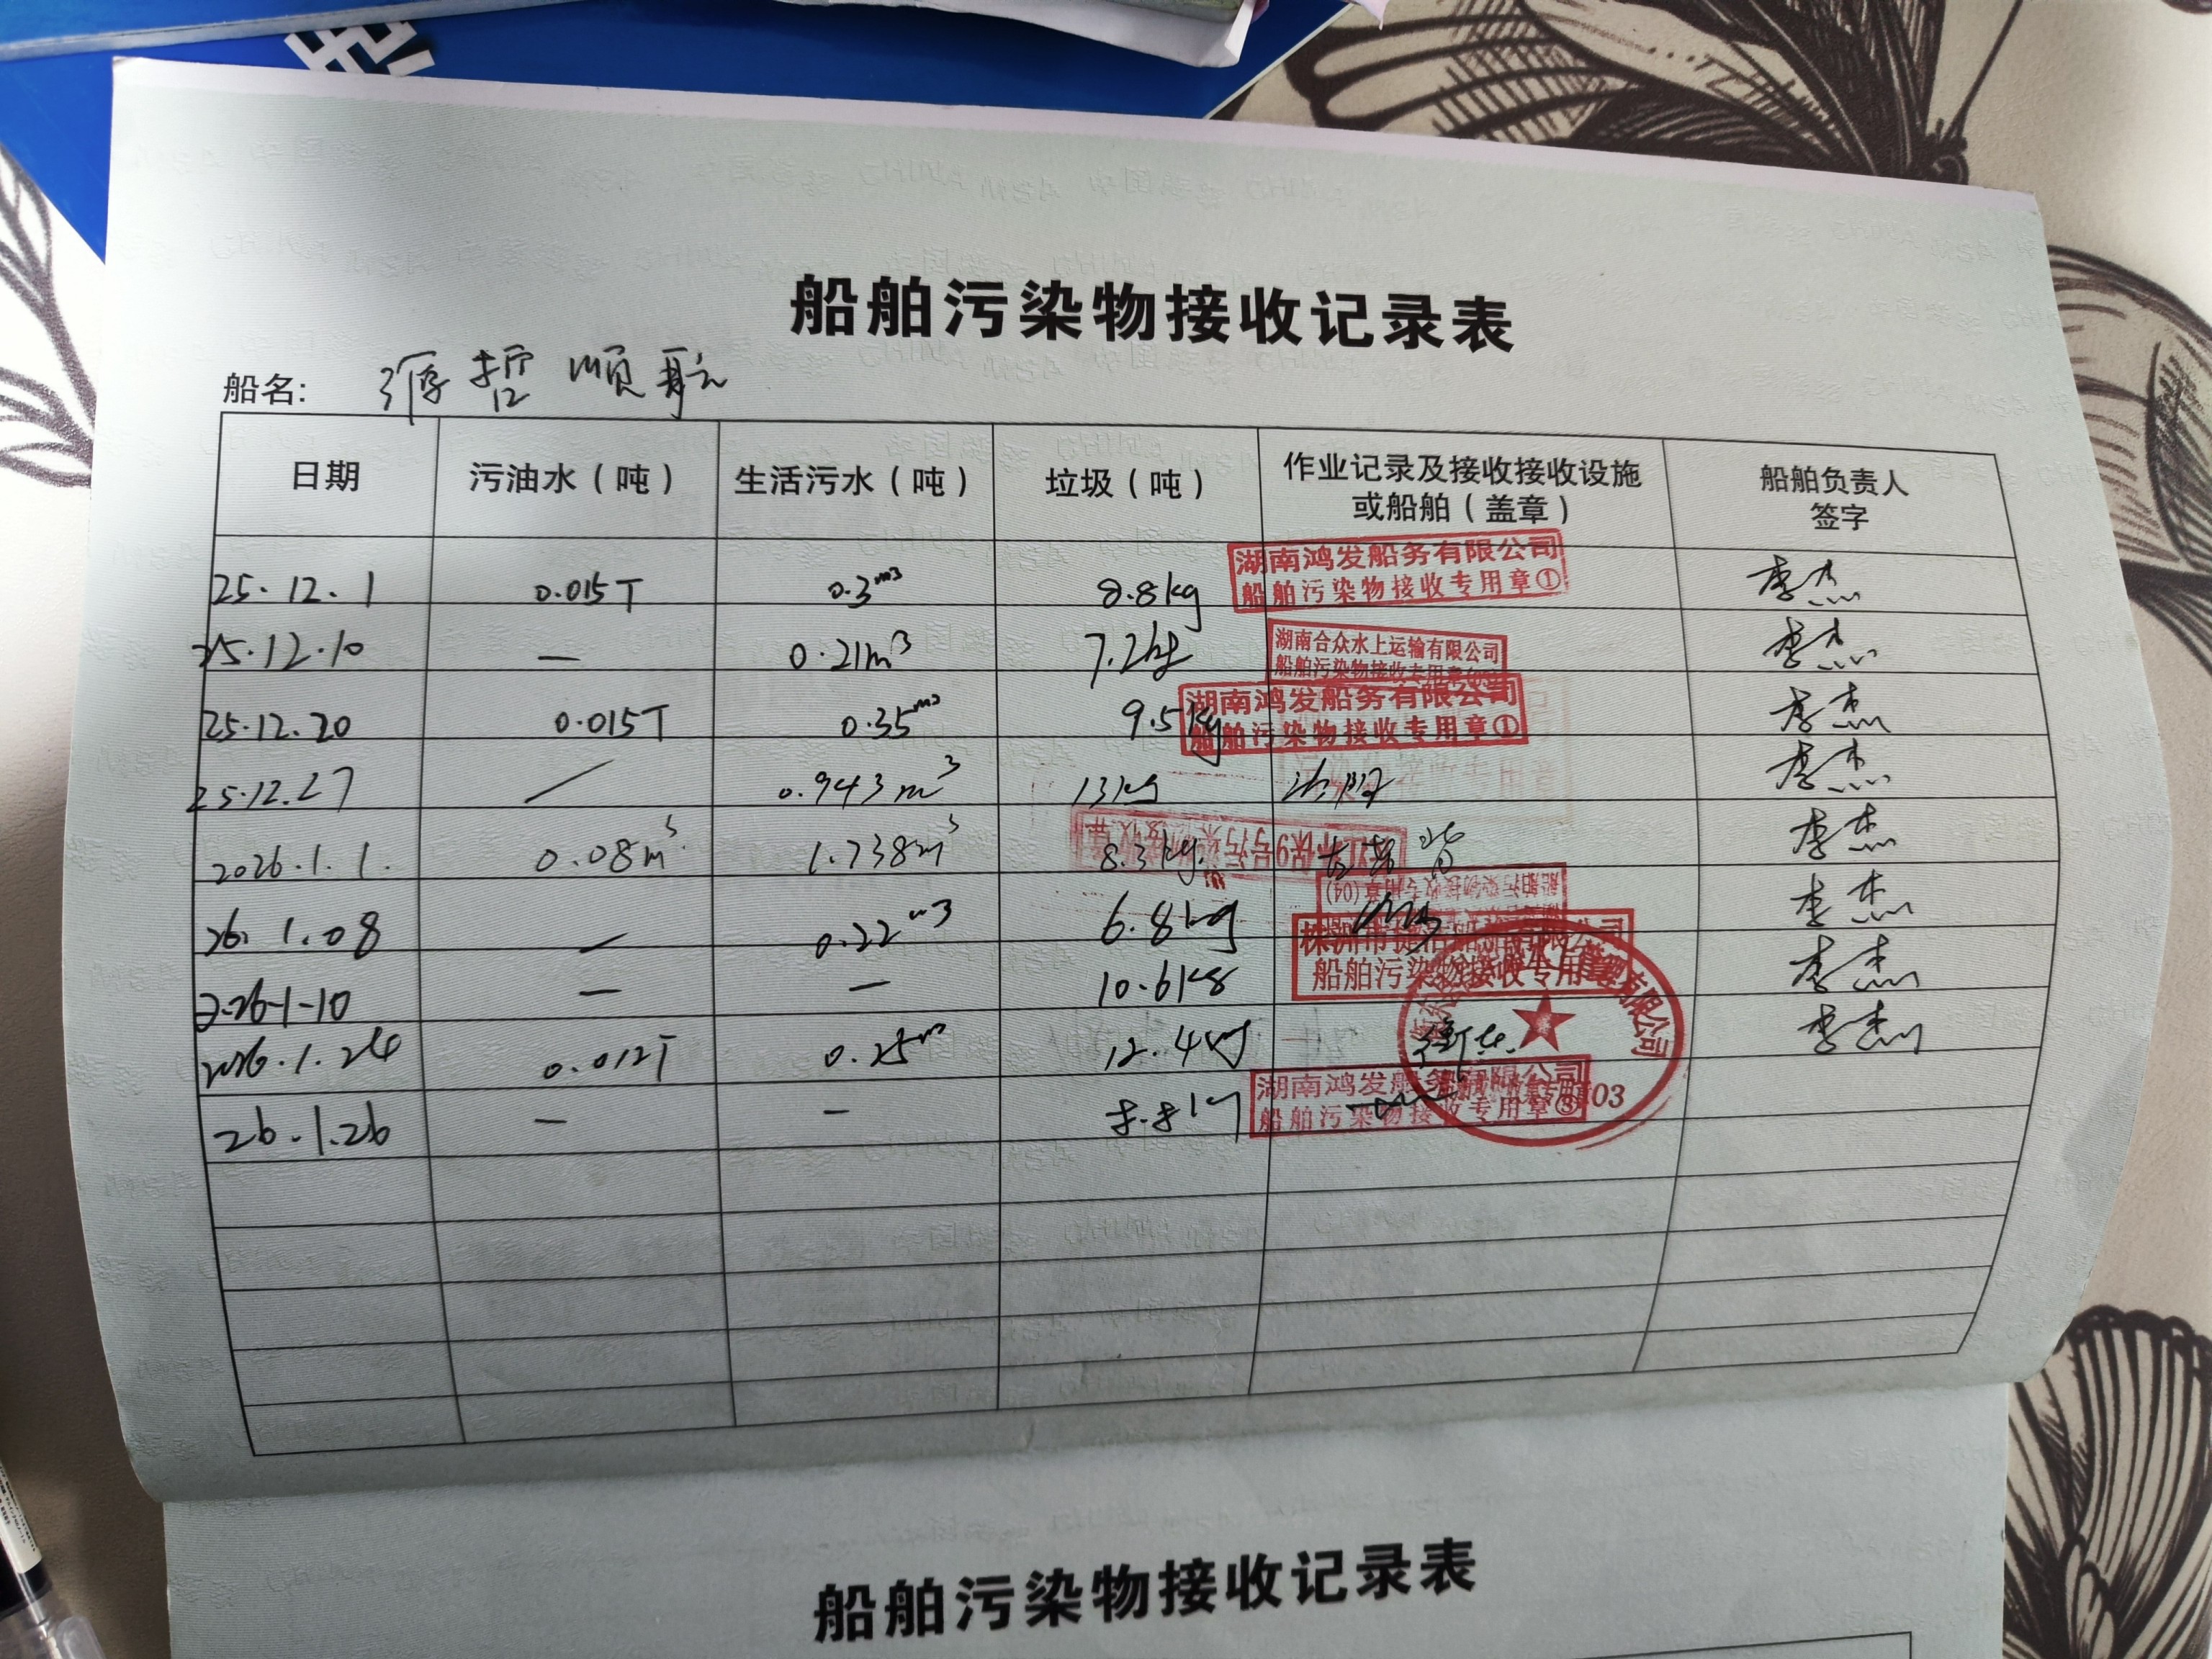 船舶污染物接收记录表
船名: 源哲顺航
日期 污油水（吨） 生活污水（吨） 垃圾（吨） 作业记录及接收接收设施或船舶（盖章） 船舶负责人签字
25.12.1 0.015T 0.3m3 8.8kg 湖南鸿发船务有限公司 船舶污染物接收专用章① 李杰
25.12.10 — 0.21m3 7.2kg 湖南合众水上运输有限公司 船舶污染物接收专用章 李杰
25.12.20 0.015T 0.35m3 9.5kg 湖南鸿发船务有限公司 船舶污染物接收专用章① 李杰
25.12.27 / 0.943m3 13kg 李杰
2026.1.1. 0.08m3 1.738m3 8.3kg 李杰
26.1.08 — 0.22m3 6.8kg 船舶污染物接收专用章(04) 李杰
2026-1-10 — — 10.6kg 船舶污染物接收专用章 李杰
2026.1.24 0.012T 0.25m3 12.4kg 有限公司 03 李杰
26.1.26 — — 8.8kg 湖南鸿发船务有限公司 船舶污染物接收专用章③
船舶污染物接收记录表